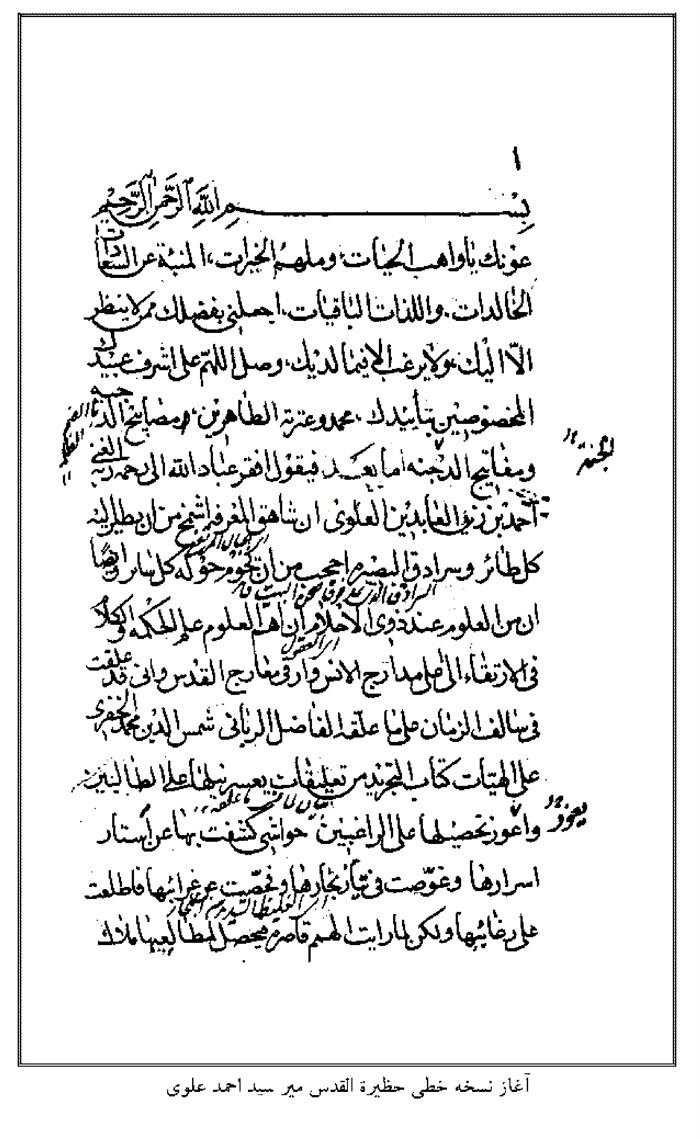 ١
بسم الله الرحمن الرحيم
عونك يا واهب الحيات، وملهم الخيرات، المنبئة عن السعادات
الخالدات، واللذات الباقيات، اجعلني بفضلك ممن لا ينظر
الّا اليك، ولا يرغب الا فيما لديك، وصل اللهم على اشرف عبيدك
المخصوصين بتأييدك، محمد وعترته الطاهرين، ومصابيح الدجنه
ومفاتيح الجنة اما بعد فيقول افقر عباد الله الى رحمة ربه الغني
احمد بن زين العابدين العلوي ان شاهق المعرفة اشمخ من ان يطير اليه
كل طائر وسرادق البصيرة احجب من ان يحوم حوله كل سائر وايضا
ان من العلوم عند ذوي الاحلام ان اهم العلوم علم الحكمة والكلام
اي العقول
في الارتقاء الى اعلى مدارج الانس وارقى معارج القدس واني قد علقت
في سالف الزمان على ما علقه الفاضل الرباني شمس الدين محمد الخفري
على الهيات كتاب التجريد من تعليقات يعسر نيلها على الطالبين
ويعوز تحصيلها على الراغبين حواشي كشفت بها عن استار
اسرارها وغوصت في تيار بحارها وفحصت عن غرائبها فاطلعت
على رغائبها ولكن لما رايت الهمم قاصرة محصل لمطالعيها ملاك
آغاز نسخه خطی حظيرة القدس مير سيد احمد علوی